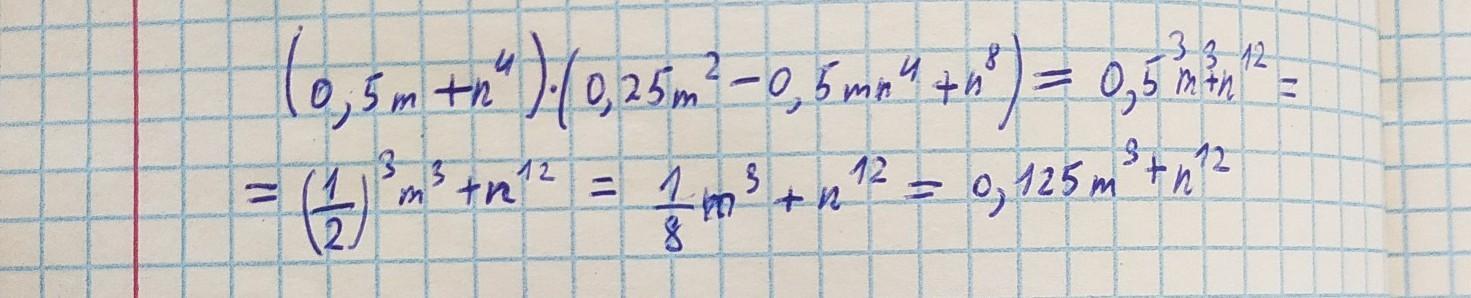 (0,5m + n⁴)·(0,25m² - 0,5mn⁴ + n⁸) = 0,5³m³+n¹² =
= (1/2)³m³ + n¹² = 1/8 m³ + n¹² = 0,125m³ + n¹²